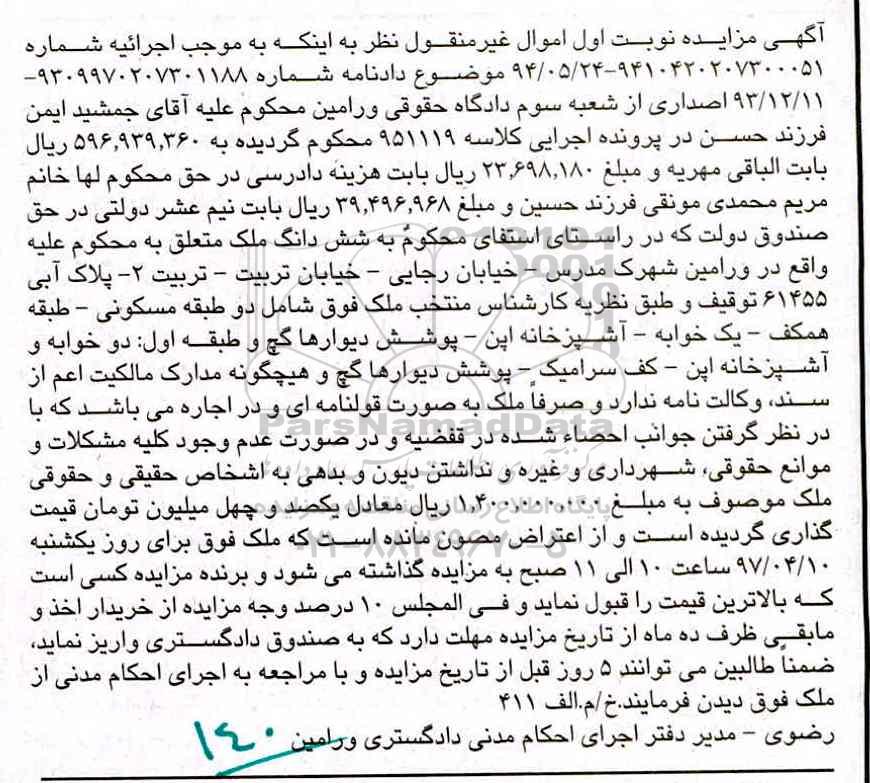 آگهی مزایده نوبت اول اموال غیرمنقول نظر به اینکه به موجب اجرائیه شماره
۹۴۱۰۴۲۰۲۰۷۳۰۰۰۵۱-۹۴/۰۵/۲۴ موضوع دادنامه شماره ۹۳۰۹۹۷۰۲۰۷۳۰۱۱۸۸-
۹۳/۱۲/۱۱ اصداری از شعبه سوم دادگاه حقوقی ورامین محکوم علیه آقای جمشید ایمن
فرزند حسن در پرونده اجرایی کلاسه ۹۵۱۱۱۹ محکوم گردیده به ۵۹۶,۹۳۹,۳۶۰ ریال
بابت الباقی مهریه و مبلغ ۲۳,۶۹۸,۱۸۰ ریال بابت هزینه دادرسی در حق محکوم لها خانم
مریم محمدی مونقی فرزند حسین و مبلغ ۳۹,۴۹۶,۹۶۸ ریال بابت نیم عشر دولتی در حق
صندوق دولت که در راستای استفای محکومٌ به شش دانگ ملک متعلق به محکوم علیه
واقع در ورامین شهرک مدرس - خیابان رجایی - خیابان تربیت - تربیت ۲- پلاک آبی
۶۱۴۵۵ توقیف و طبق نظریه کارشناس منتخب ملک فوق شامل دو طبقه مسکونی - طبقه
همکف - یک خوابه - آشپزخانه اپن - پوشش دیوارها گچ و طبقه اول: دو خوابه و
آشپزخانه اپن - کف سرامیک - پوشش دیوارها گچ و هیچگونه مدارک مالکیت اعم از
سند، وکالت نامه ندارد و صرفاً ملک به صورت قولنامه ای و در اجاره می باشد که با
در نظر گرفتن جوانب احصاء شده در قفضیه و در صورت عدم وجود کلیه مشکلات و
موانع حقوقی، شهرداری و غیره و نداشتن دیون و بدهی به اشخاص حقیقی و حقوقی
ملک موصوف به مبلغ ۱,۴۰۰,۰۰۰,۰۰۰ ریال معادل یکصد و چهل میلیون تومان قیمت
گذاری گردیده است و از اعتراض مصون مانده است که ملک فوق برای روز یکشنبه
۹۷/۰۴/۱۰ ساعت ۱۰ الی ۱۱ صبح به مزایده گذاشته می شود و برنده مزایده کسی است
که بالاترین قیمت را قبول نماید و فی المجلس ۱۰ درصد وجه مزایده از خریدار اخذ و
مابقی ظرف ده ماه از تاریخ مزایده مهلت دارد که به صندوق دادگستری واریز نماید،
ضمناً طالبین می توانند ۵ روز قبل از تاریخ مزایده و با مراجعه به اجرای احکام مدنی از
ملک فوق دیدن فرمایند.خ/م.الف ۴۱۱
رضوی - مدیر دفتر اجرای احکام مدنی دادگستری ورامین ۱۴۰
ParsNamadData